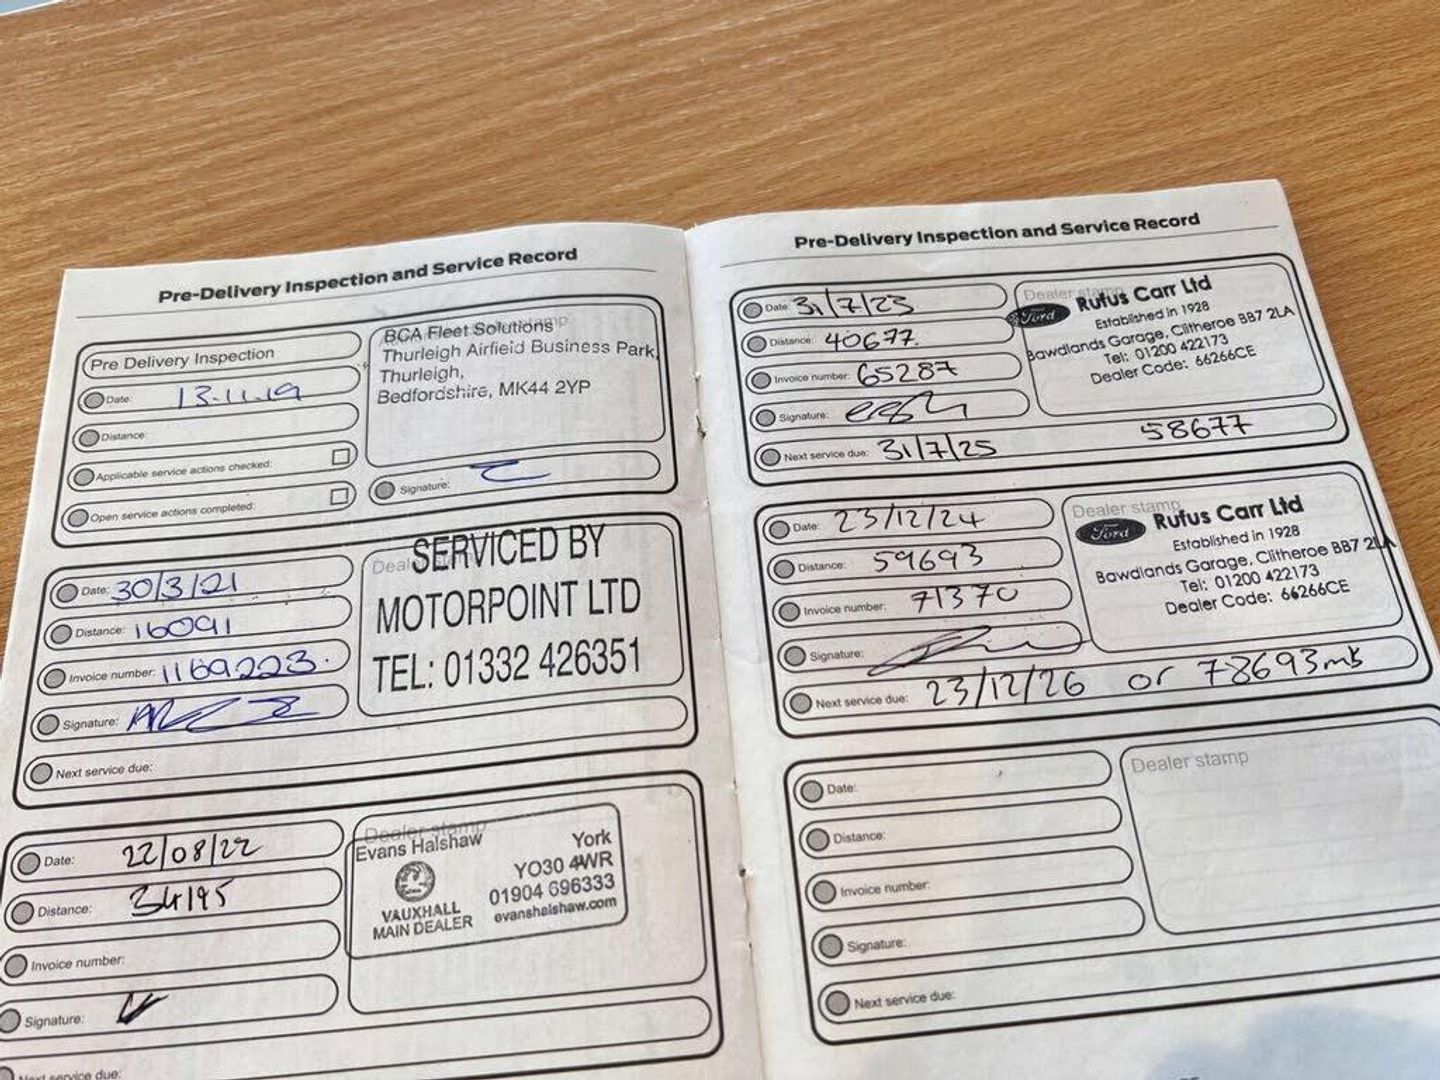 Pre-Delivery Inspection and Service Record
Pre Delivery Inspection
Date: 13.11.19
Distance:
Applicable service actions checked:
Open service actions completed:
Dealer stamp
BCA Fleet Solutions
Thurleigh Airfield Business Park,
Thurleigh,
Bedfordshire, MK44 2YP
Signature:
Date: 30/3/21
Distance: 16091
Invoice number: 1169223.
Signature:
Next service due:
Dealer stamp
SERVICED BY
MOTORPOINT LTD
TEL: 01332 426351
Date: 22/08/22
Distance: 34195
Invoice number:
Signature:
Next service due:
Dealer stamp
Evans Halshaw
VAUXHALL
MAIN DEALER
York
YO30 4WR
01904 696333
evanshalshaw.com
Pre-Delivery Inspection and Service Record
Date: 31/7/23
Distance: 40677.
Invoice number: 65287
Signature:
Next service due: 31/7/25 58677
Dealer stamp
Ford
Rufus Carr Ltd
Established in 1928
Bawdlands Garage, Clitheroe BB7 2LA
Tel: 01200 422173
Dealer Code: 66266CE
Date: 23/12/24
Distance: 59693
Invoice number: 71370
Signature:
Next service due: 23/12/26 or 78693mls
Dealer stamp
Ford
Rufus Carr Ltd
Established in 1928
Bawdlands Garage, Clitheroe BB7 2LA
Tel: 01200 422173
Dealer Code: 66266CE
Date:
Distance:
Invoice number:
Signature:
Next service due:
Dealer stamp